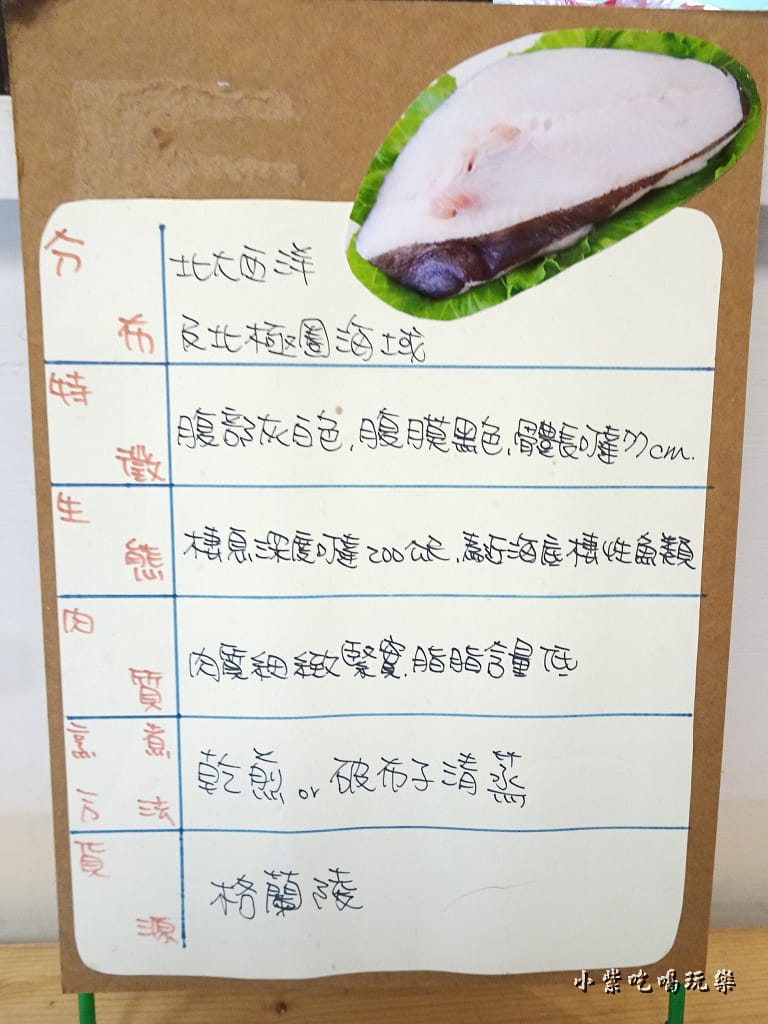 分布
北大西洋
及北極圈海域
特徵
腹部灰白色,腹膜黑色,體長可達cm.
生態
棲息深度可達200公尺,靠近海底棲性魚類
肉質
肉質細緻緊實,脂脂含量低
適合煮法
乾煎 or 破布子清蒸
貨源
格蘭陵
小紫吃喝玩樂